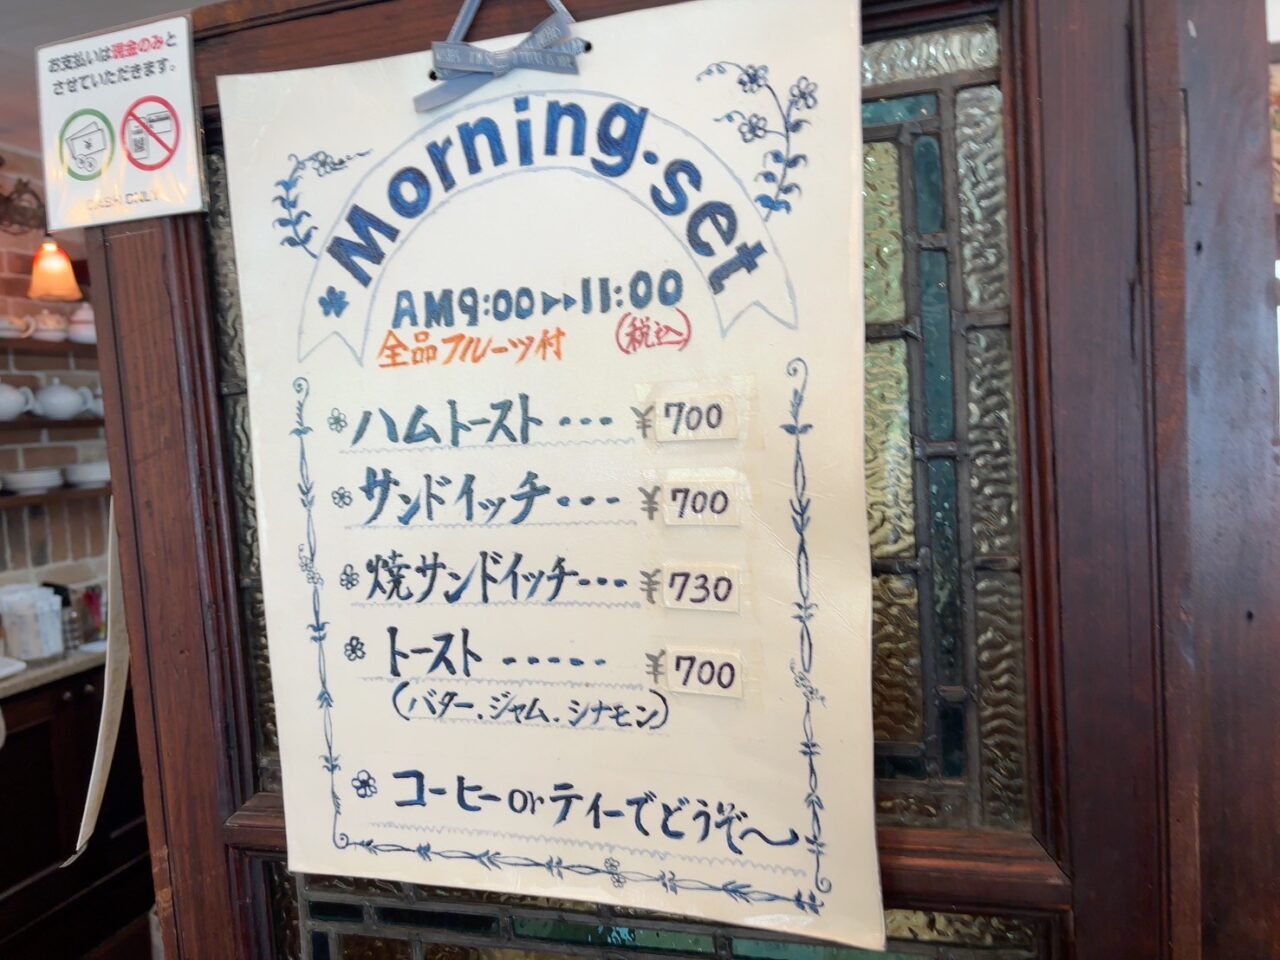 お支払いは現金のみと
させていただきます。
CASH ONLY
Morning・set
AM9:00▸▸11:00
全品フルーツ付 (税込)
ハムトースト・・・¥700
サンドイッチ・・・¥700
焼サンドイッチ・・・¥730
トースト・・・・・¥700
(バター、ジャム、シナモン)
コーヒーorティーでどうぞ〜